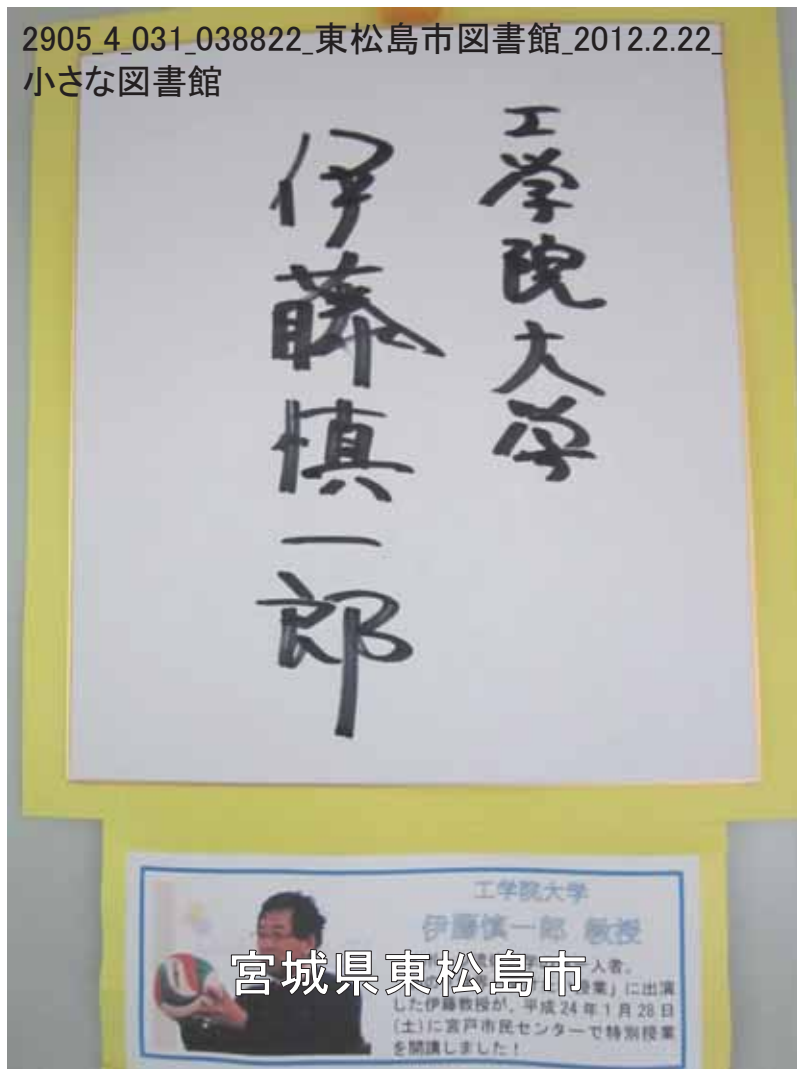 2905_4_031_038822_東松島市図書館_2012.2.22_
小さな図書館
工学院大学
伊藤慎一郎
工学院大学
伊藤慎一郎 教授
人者。
業」に出演
した伊藤教授が、平成24年1月28日
(土)に宮戸市民センターで特別授業
を開講しました！
宮城県東松島市